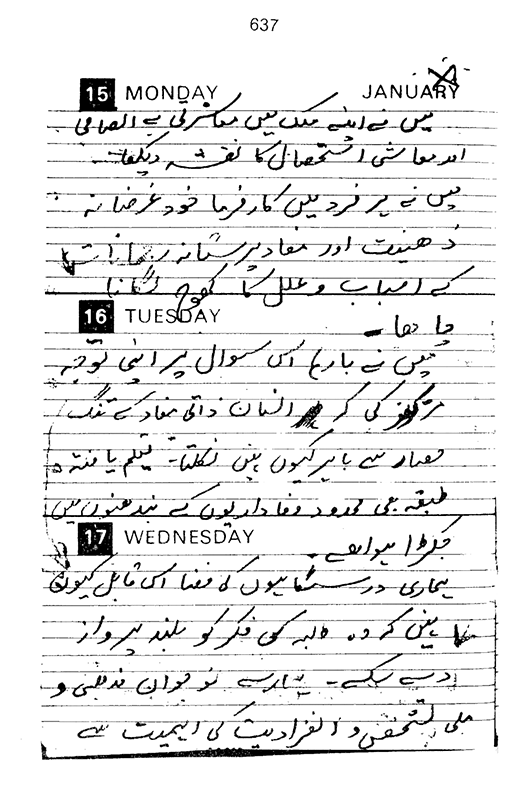 637
15 MONDAY JANUARY
میں نے اپنے ملک میں معاشرتی بے انصافی
اور معاشی استحصال کا نقشہ دیکھا۔
میں نے ہر فرد میں کارفرما خود غرضانہ
ذہنیت اور مفاد پرستانہ رجحانات
کے اسباب و علل کا کھوج لگانا
16 TUESDAY
چاہا۔
میں نے بارہا اس سوال پر اپنی توجہ
مرکوز کی کہ انسان ذاتی مفاد کے تنگ
حصار سے باہر کیوں نہیں نکلتا۔ تعلیم یافتہ
طبقہ بھی محدود وفاداریوں کے بندھنوں میں
17 WEDNESDAY
جکڑا ہوا ہے۔
ہماری درسگاہوں کی فضا اس قابل کیوں
نہیں کہ وہ طلبہ کی فکر کو بلند پرواز
دے سکے۔ ہمارے نوجوان مذہبی و
ملی تشخص و انفرادیت کی اہمیت سے